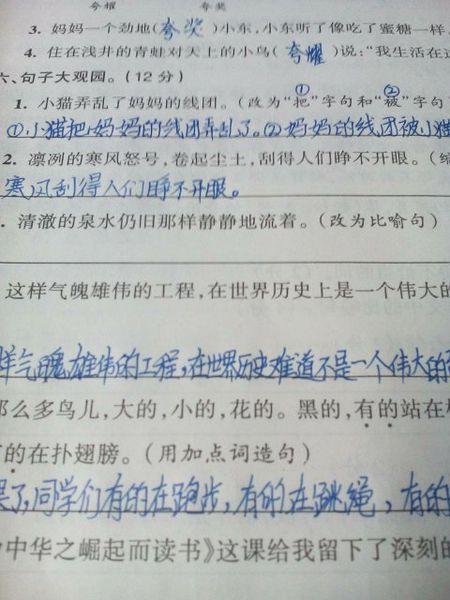 夸耀 夸奖
3. 妈妈一个劲地(夸奖)小东,小东听了像吃了蜜糖一样
4. 住在浅井的青蛙对天上的小鸟(夸耀)说:“我生活在这
六、句子大观园。(12分)
① ②
1. 小猫弄乱了妈妈的线团。(改为“把”字句和“被”字句
①小猫把妈妈的线团弄乱了。②妈妈的线团被小猫
2. 凛冽的寒风怒号,卷起尘土,刮得人们睁不开眼。(缩
寒风刮得人们睁不开眼。
. 清澈的泉水仍旧那样静静地流着。(改为比喻句)
这样气魄雄伟的工程,在世界历史上是一个伟大的
样气魄雄伟的工程,在世界历史难道不是一个伟大的
那么多鸟儿,大的,小的,花的。黑的,有的站在
的在扑翅膀。(用加点词造句)
了,同学们有的在跑步,有的在跳绳,有的
中华之崛起而读书》这课给我留下了深刻的